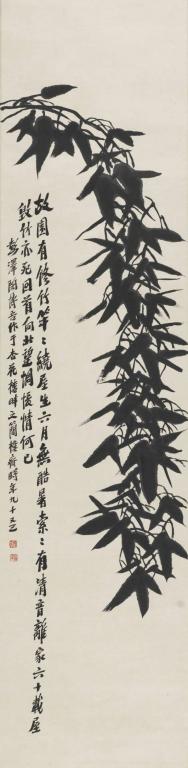 故園有修竹竿〻繞屋生六月無酷暑索〻有清音離家六十載屋
毀竹亦死回首向北望惆悵情何已
彭澤陶壽

作于杏花樓畔之簡樸齋時年九十又二